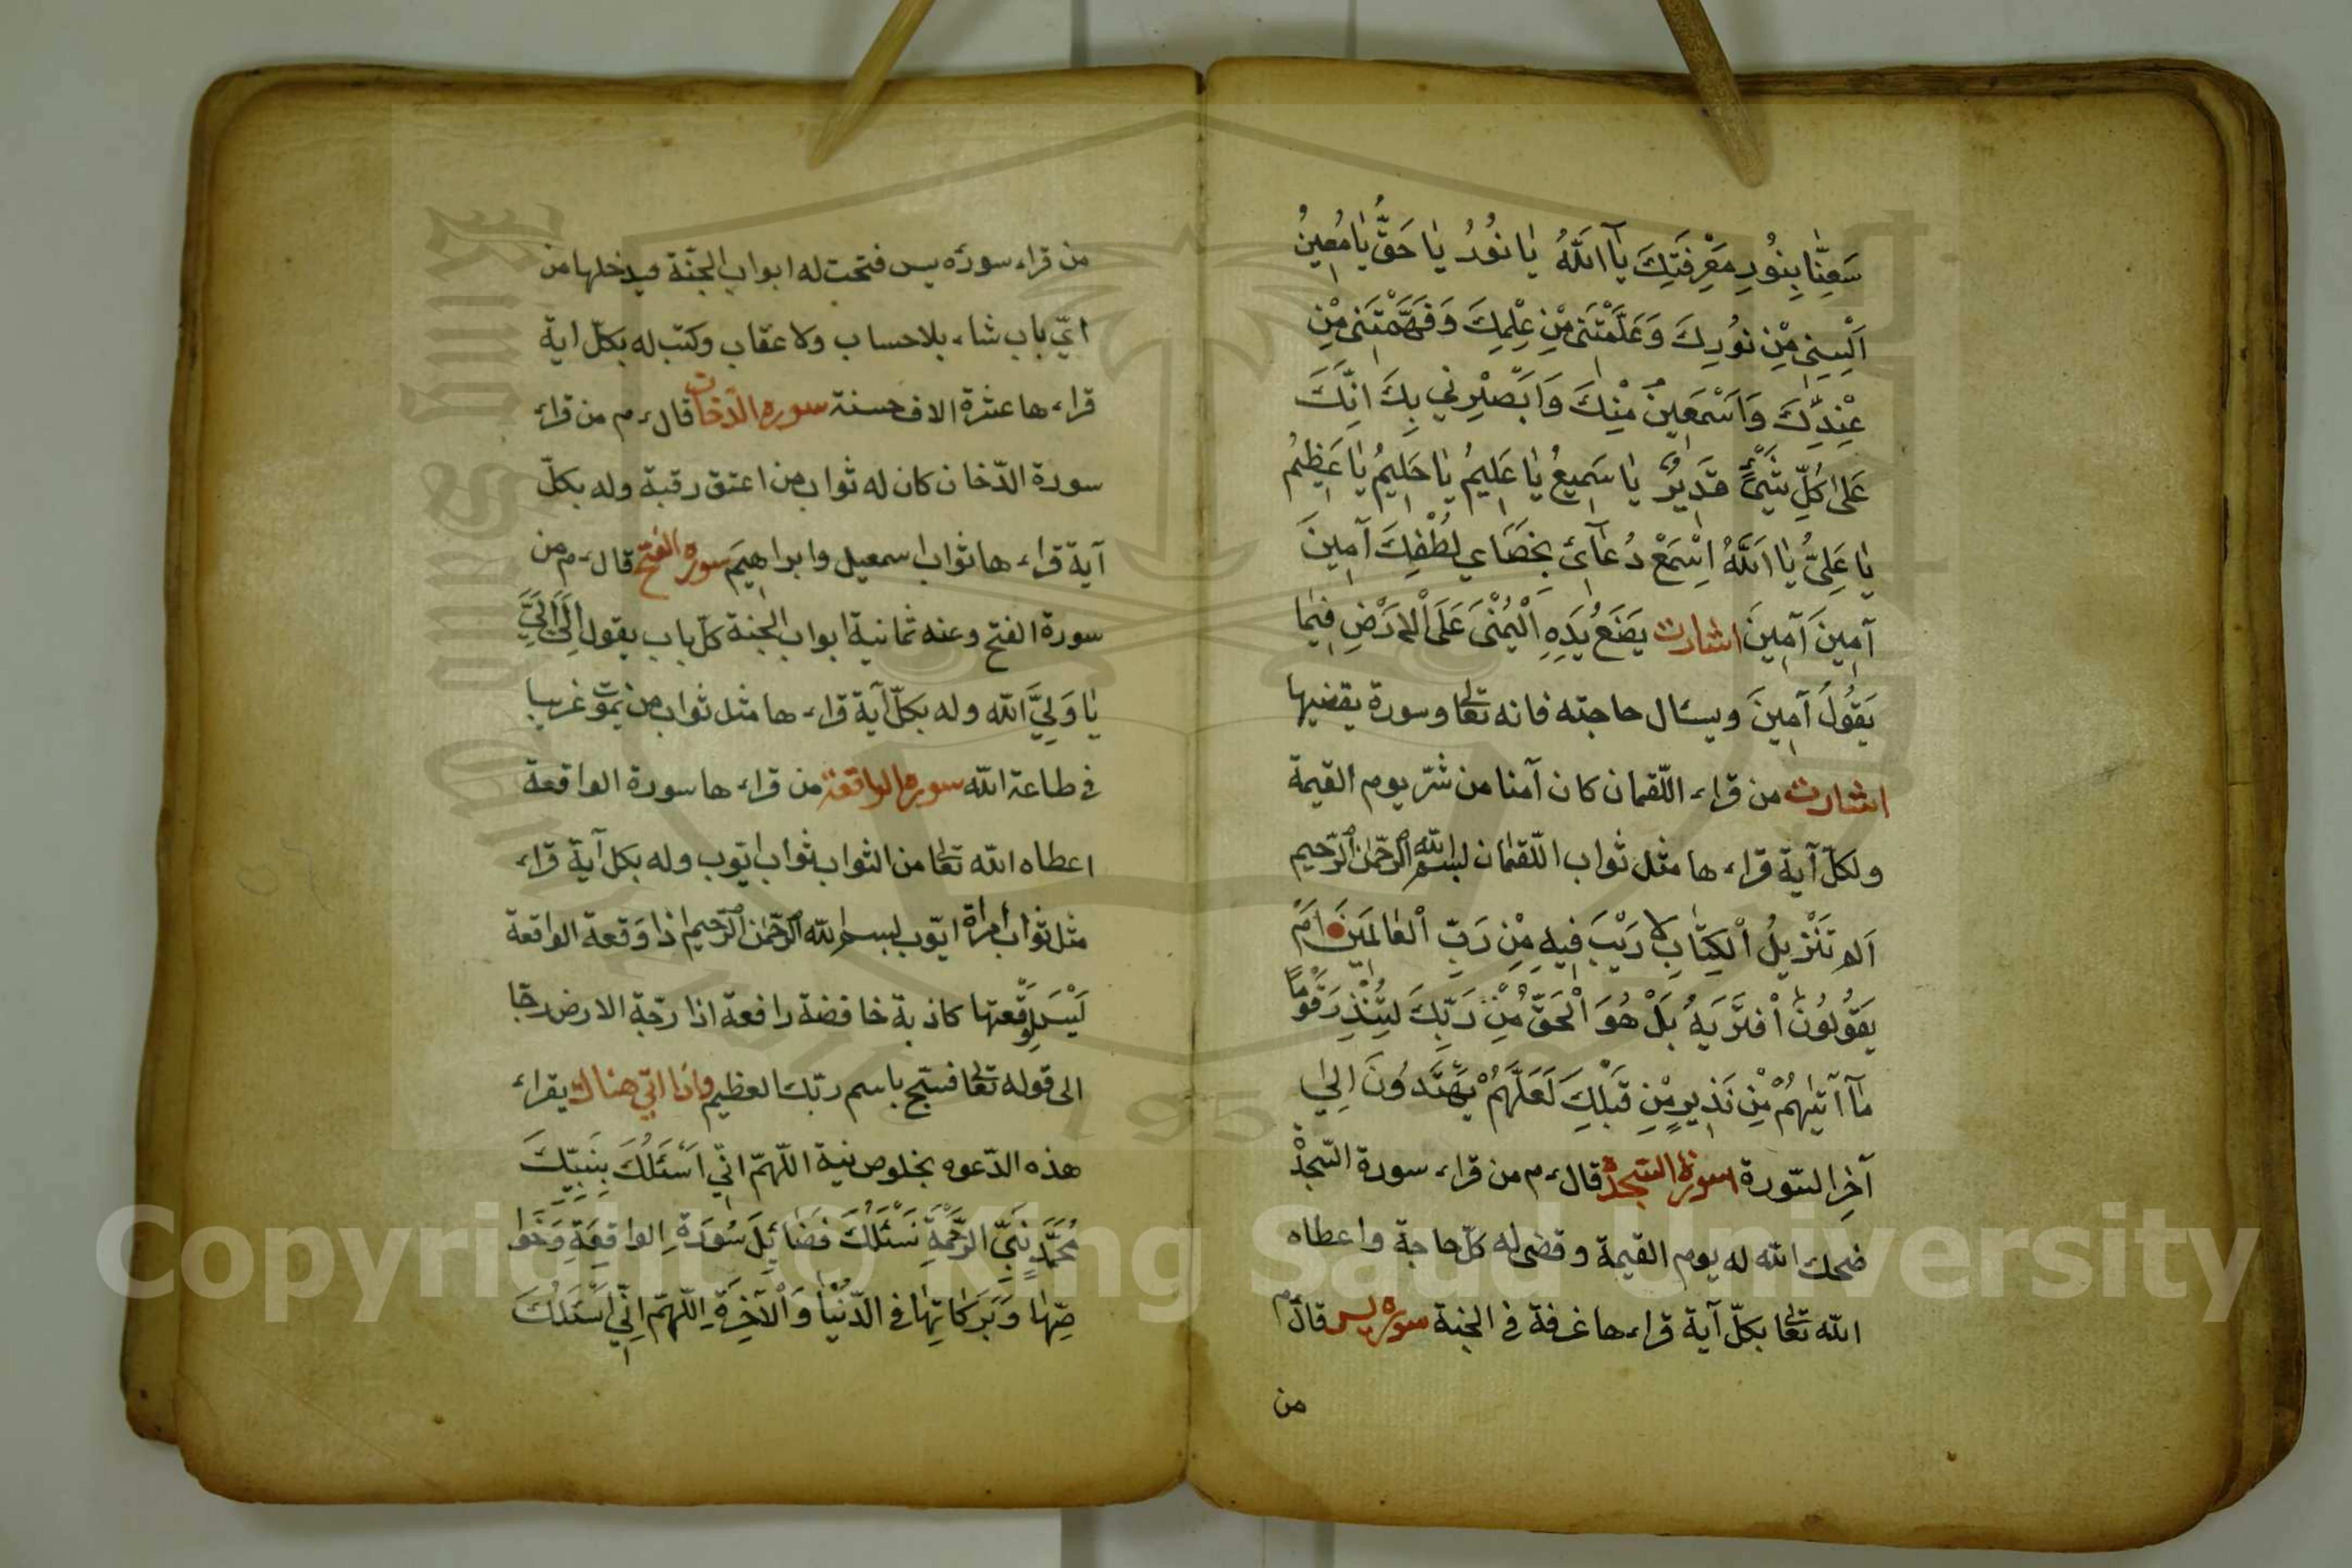 سَعِنَّا بِنُورِ مَعْرِفَتِكَ يَآ اَللّٰهُ يَا نُورُ يَا حَقُّ يَا مُعِينُ
اَلْبِسْنِي مِنْ نُورِكَ وَعَلَّمْتَنِي مِنْ عِلْمِكَ وَفَهَّمْتَنِي مِنْ
عِنْدِكَ وَاَسْمَعِينُ مِنْكَ وَاَبَصِّيْرِنِي بِكَ اِنَّكَ
عَلٰى كُلِّ شَيْءٍ قَدِيرٌ يَا سَمِيعُ يَا عَلِيمُ يَا حَلِيمُ يَا عَظِيمُ
يَا عَلِيُّ يَا اَللّٰهُ اِسْمَعْ دُعَآئِي بِخَصَاءِي لُطْفِكَ آمِينَ
آمِينَ آمِينَ اشارت يَضَعُ يَدِهِ الْيُمْنٰى عَلَى الْاَرْضِ فِيمَا
يَقُولُ آمِينَ ويسئال حاجته فانه تعالى وسورة يقضيها
اشارت من قراء اللّقمان كان آمنا من شرّ يوم القيمة
ولكلّ آية قراءها مثل ثواب اللّقمان بسم الله الرّحمن الرّحيم
اَلم تَنْزِيلُ الْكِتَابِ لَا رَيْبَ فِيهِ مِنْ رَبِّ الْعَالَمِينَ اَمْ
يَقُولُونَ افْتَرَيهُ بَلْ هُوَ الْحَقُّ مِنْ رَبِّكَ لِتُنْذِرَ قَوْمًا
مَآ اَتٰيهُمْ مِنْ نَذِيرٍ مِنْ قَبْلِكَ لَعَلَّهُمْ يَهْتَدُونَ اِلٰى
آخِرِ السّورة سورة السّجدة قال ءم من قراء سورة السّجدة
ضحك الله له يوم القيمة وقضى له كلّ حاجة واعطاه
الله تعالى بكلّ آية قراءها غرفة في الجنة سورة يس قال ءم
من
من قراء سورة يس فتحت له ابواب الجنّة فيدخلها من
ايّ باب شاء بلا حساب ولا عقاب وكتب له بكلّ اية
قراءها عشرة الاف حسنة سورة الدّخان قال ءم من قراء
سورة الدّخان كان له ثواب من اعتق رقبة وله بكلّ
آية قراءها ثواب اسمعيل وابراهيم سورة الفتح قال ءم من
سورة الفتح وعنه ثمانية ابواب الجنة كلّ باب يقول اِلَيَّ اِلَيَّ
يَا وَلِيَّ الله وله بكلّ آية قراءها مثل ثواب من يموت غريبا
في طاعة الله سورة الواقعة من قراءها سورة الواقعة
اعطاه الله تعالى من الثواب ثواب ايّوب وله بكل آية قراء
مثل ثواب امراة ايّوب بسم الله الرّحمن الرّحيم اذا وقعة الواقعة
لَيْسَ لِوَقْعتها كاذبة خافضة رافعة اذا رجّة الارض رجّا
الى قوله تعالى فسبّح باسم ربّك العظيم واذا اتى هناك يقراء
هذه الدّعوه بخلوص نية اللّهمّ انّي اَسْئَلُكَ بِنَبِيِّكَ
مُحَمَّدٍ نَبِيِّ الرَّحْمَةِ نَسْئَلُكَ فَضَائِلَ سُورَةِ الواقِعَةِ وَخَوَا
صِّهَا وَبَرَكَاتِهَا فِي الدّنْيَا وَالْآخِرَةِ اللّهمّ انّي اَسْئَلُكَ
Copyright © King Saud University
King Saud University
1957